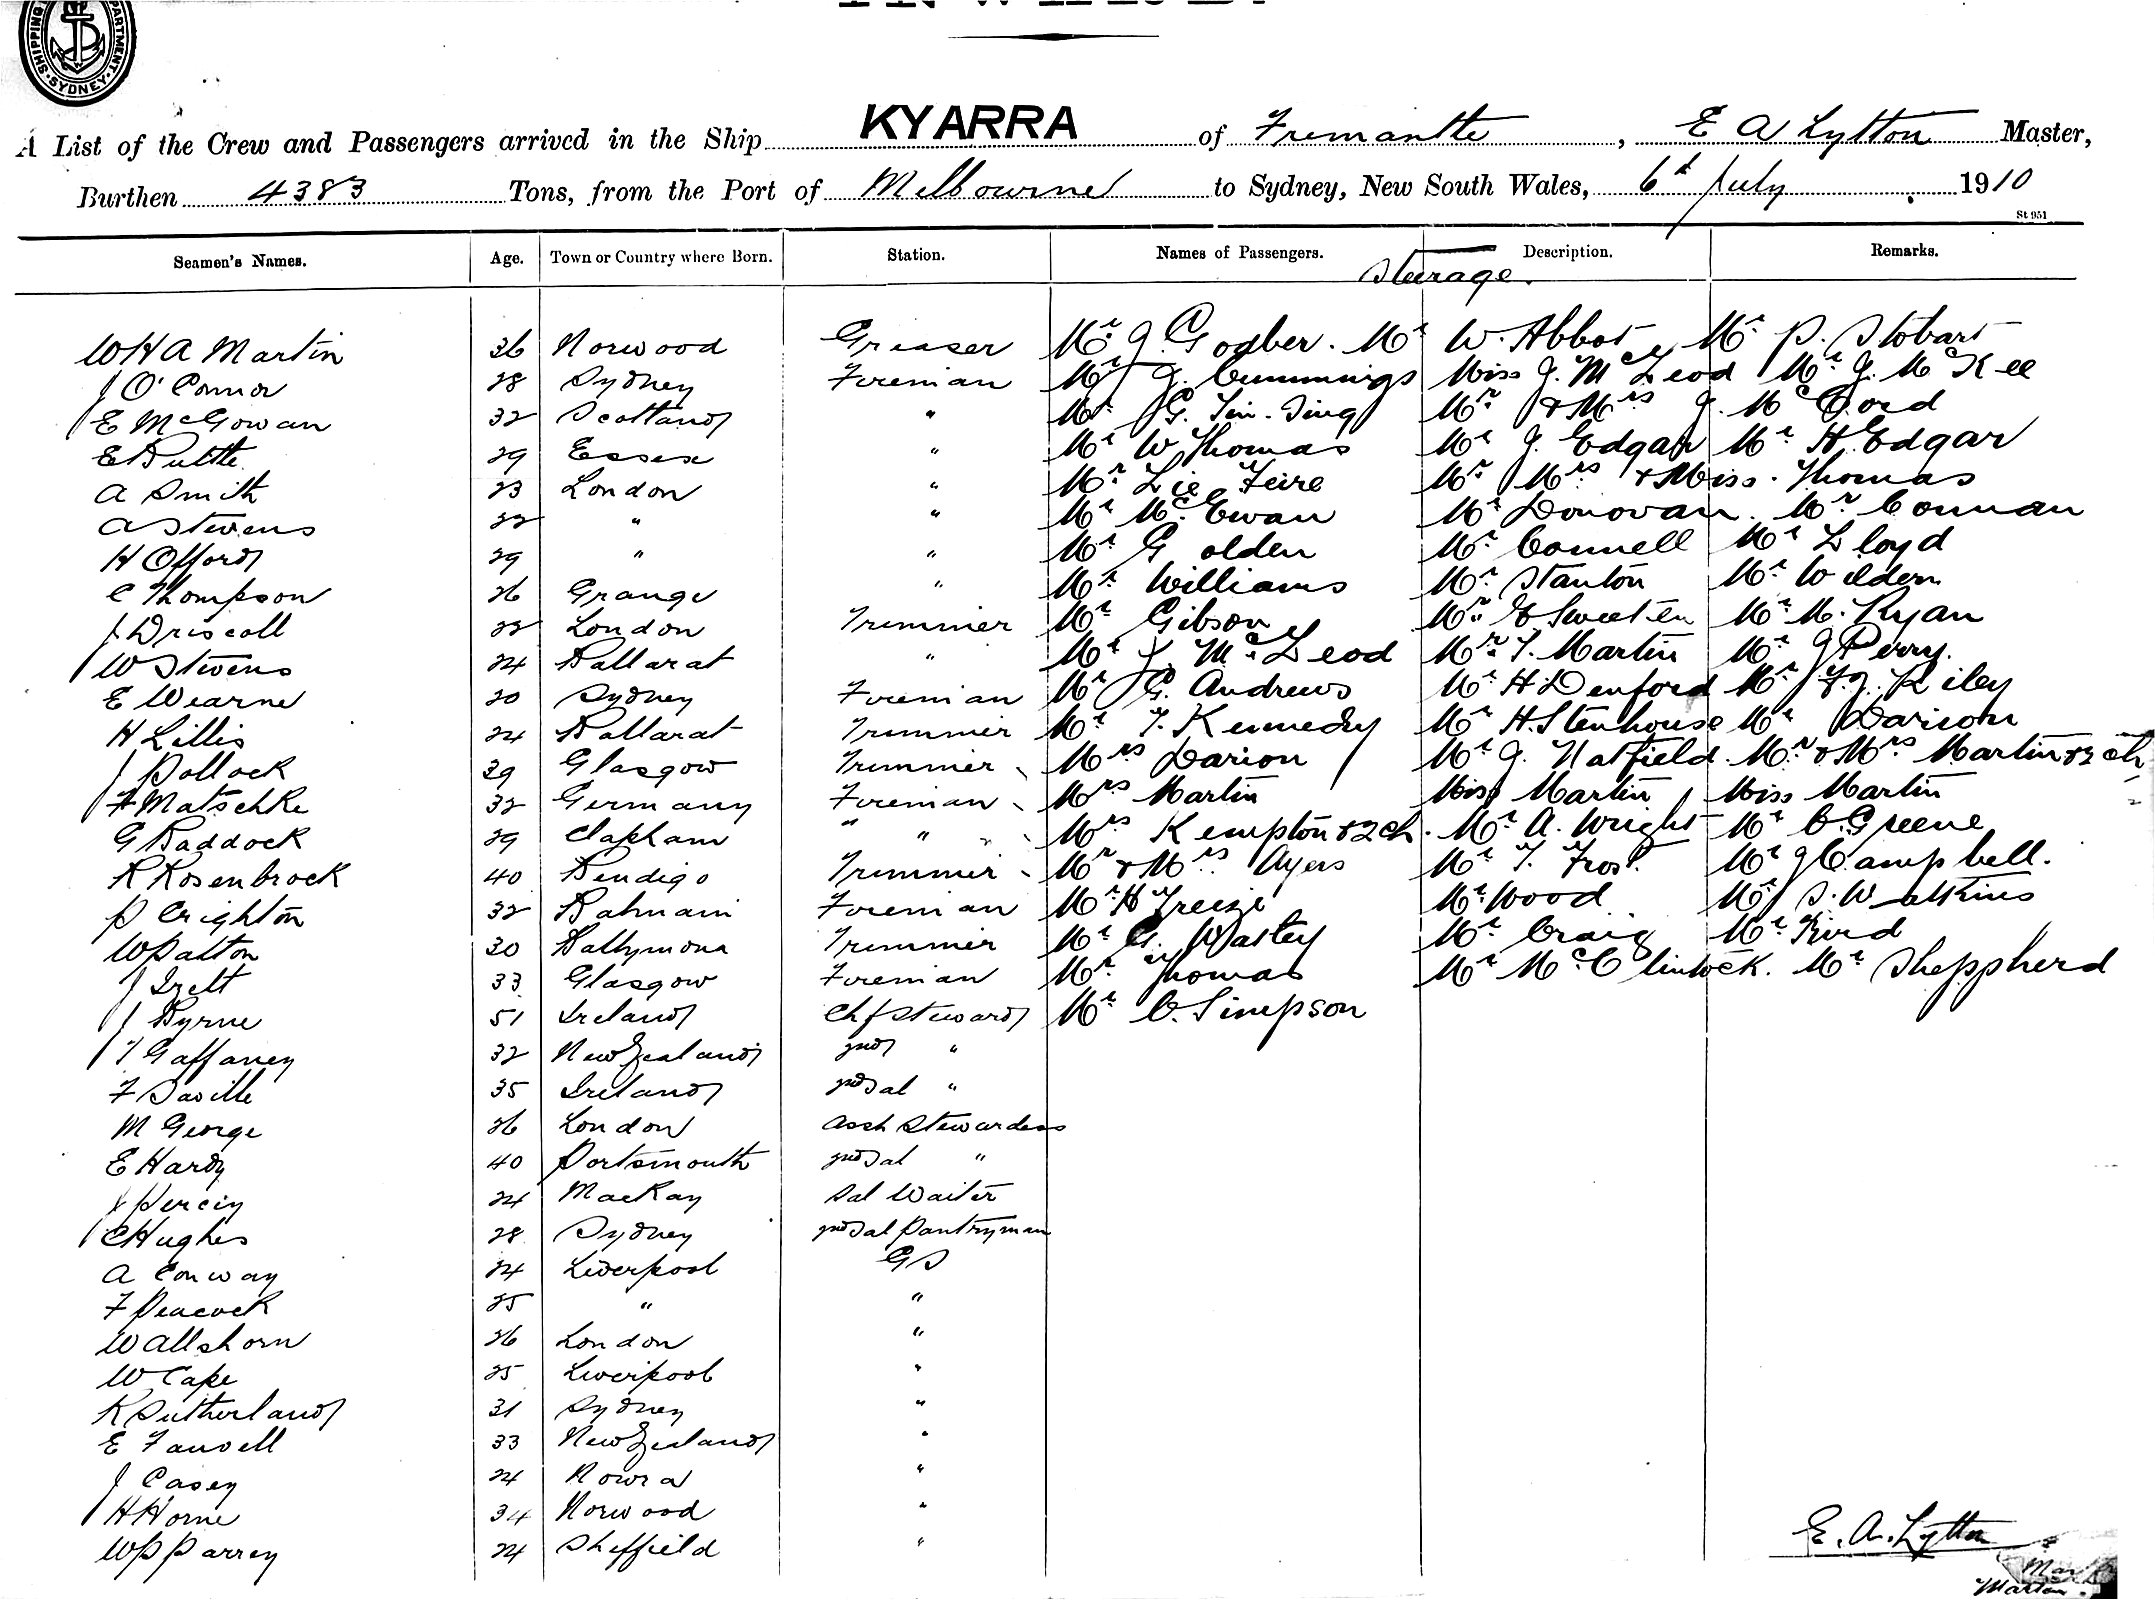 SHIPPING DEPARTMENT · SYDNEY ·
A List of the Crew and Passengers arrived in the Ship KYARRA of Fremantle, E A Lytton Master,
Burthen 4383 Tons, from the Port of Melbourne to Sydney, New South Wales, 6th July 1910
St 951
Seamen's Names. Age. Town or Country where Born. Station. Names of Passengers. Description. Remarks.
Steerage.
W H A Martin 36 Norwood Greaser Mr J Godber. Mr W. Abbot Mr P. Stobart
J O'Connor 28 Sydney Fireman Mr J. Cummings Miss J. McLeod Mr J. McKee
E McGowan 32 Scotland " Mr G. Tin-Sing Mr & Mrs J. McCord
E 29 Essex " Mr W Thomas Mr J. Edgar Mr H. Edgar
A Smith 23 London " Mr Lie Mr Mrs & Miss. Thomas
A Stevens 22 " " Mr McEwan Mr Donovan. Mr Connan
H Offord 29 " " Mr Golden Mr Connell Mr Lloyd
C Thompson 26 Grange " Mr Williams Mr Stanton Mr Wildern
J Driscoll 22 London Trimmer Mr Gibson Mr E Sweeten Mr M. Ryan
W Stevens 24 Ballarat " Mr J. McLeod Mr T. Martin Mr J Perry.
E Wearne 20 Sydney Fireman Mr G. Andrews Mr H Denford Mr F. J. Riley
H Lillis 24 Ballarat Trimmer Mr T. Kennedy Mr H. Stenhouse Mr Darion
J Pollock 39 Glasgow Trimmer Mrs Darion Mr J. Hatfield. Mr & Mrs Martin & 2 ch
F Matschke 32 Germany Fireman Mrs Martin Miss Martin Miss Martin
G Baddock 29 Clapham " " Mrs Kempton & 2 ch. Mr A. Wright Mr C. Greene
R Rosenbrock 40 Bendigo Trimmer Mr & Mrs Ayers Mr T. Frost. Mr J Campbell.
P Crighton 32 Balmain Fireman Mr H Freeze Mr Wood Mr S. Watkins
W Patton 30 Ballymona Trimmer Mr G. Mr Craig Mr Bird
J Izett 33 Glasgow Fireman Mr Thomas Mr McClintock. Mr Sheppherd
J Byrne 51 Ireland Chf Steward Mr C. Simpson
T Gaffaney 32 New Zealand 2nd "
F Saville 35 Ireland 2nd Sal "
M George 26 London Asst Stewardess
E Hardy 40 Portsmouth 2nd Sal "
J Percey 24 Mackay Sal Waiter
C Hughes 28 Sydney 2nd Sal Pantryman
A Conway 24 Liverpool G S
F Peacock 25 " "
W Allshorn 26 London "
W Cape 25 Liverpool "
K Sutherland 31 Sydney "
E Fawsell 33 New Zealand "
J Casey 24 Nowra "
H Horne 34 Norwood "
W P Parrey 24 Sheffield "
E. A. Lytton
Master.